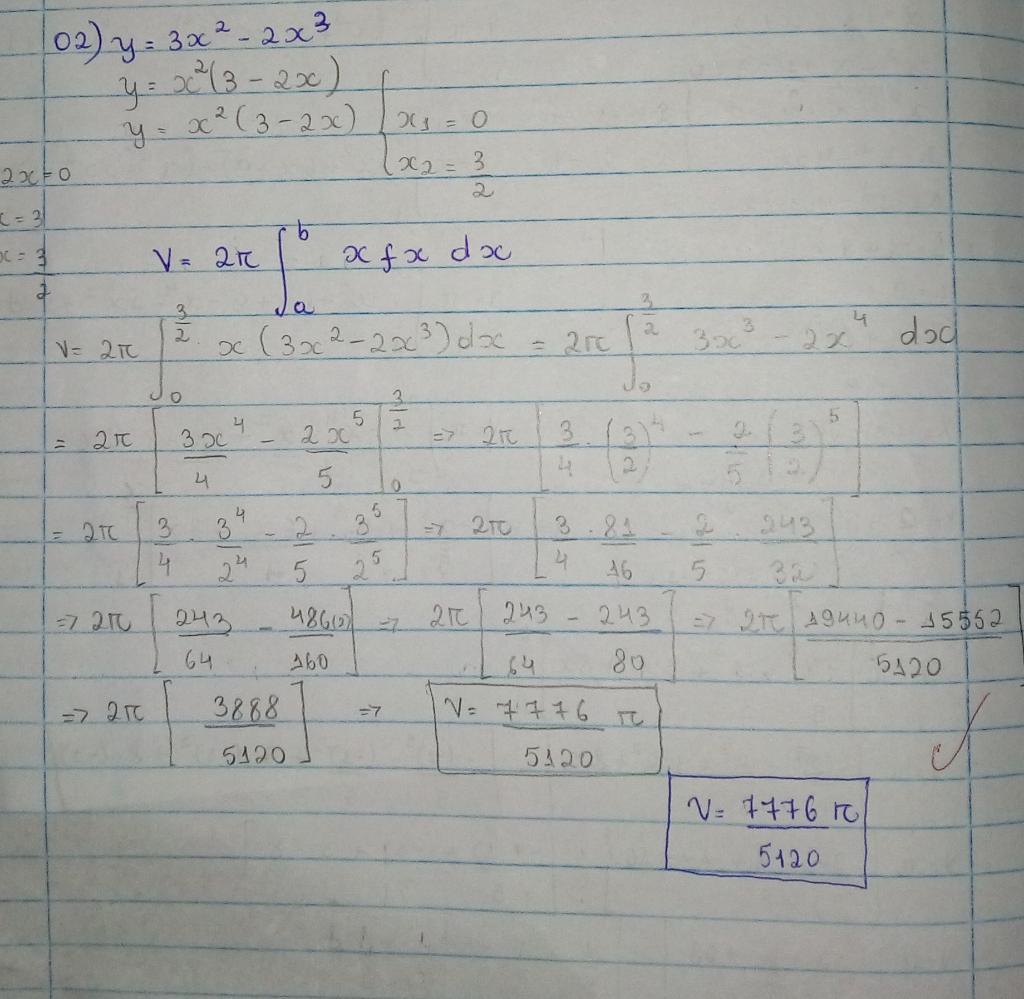 02) y = 3x² - 2x³
y = x²(3 - 2x)
y = x²(3 - 2x) { x₁ = 0
x₂ = 3/2
2x=0
x = 3
x = 3/2
V = 2π ∫ₐᵇ x fx dx
V = 2π ∫₀^(3/2) x (3x² - 2x³) dx = 2π ∫₀^(3/2) 3x³ - 2x⁴ dx
= 2π [3x⁴/4 - 2x⁵/5]₀^(3/2) => 2π [3/4 · (3/2)⁴ - 2/5 (3/2)⁵]
= 2π [3/4 · 3⁴/2⁴ - 2/5 · 3⁵/2⁵] => 2π [3/4 · 81/16 - 2/5 · 243/32]
=> 2π [243/64 - 486(2)/160] => 2π [243/64 - 243/80] => 2π [19440 - 15552/5120]
=> 2π [3888/5120] => V = 7776/5120 π
V = 7776/5120 π